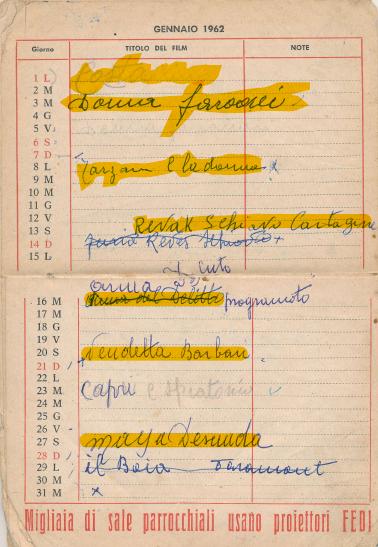 GENNAIO 1962
Giorno TITOLO DEL FILM NOTE
1 L
2 M
3 M Donna faraoni
4 G
5 V
6 S
7 D
8 L Tarzan e la donna x
9 M
10 M
11 G
12 V Revak Schiavo Cartagine
13 S
14 D Reves
15 L
anno
16 M programmato
17 M
18 G
19 V
20 S Vendetta Barbari
21 D
22 L
23 M Capri e ✓
24 M
25 G
26 V
27 S maya Desnuda
28 D
29 L il Boia
30 M
31 M x
Migliaia di sale parrocchiali usano proiettori FEDI